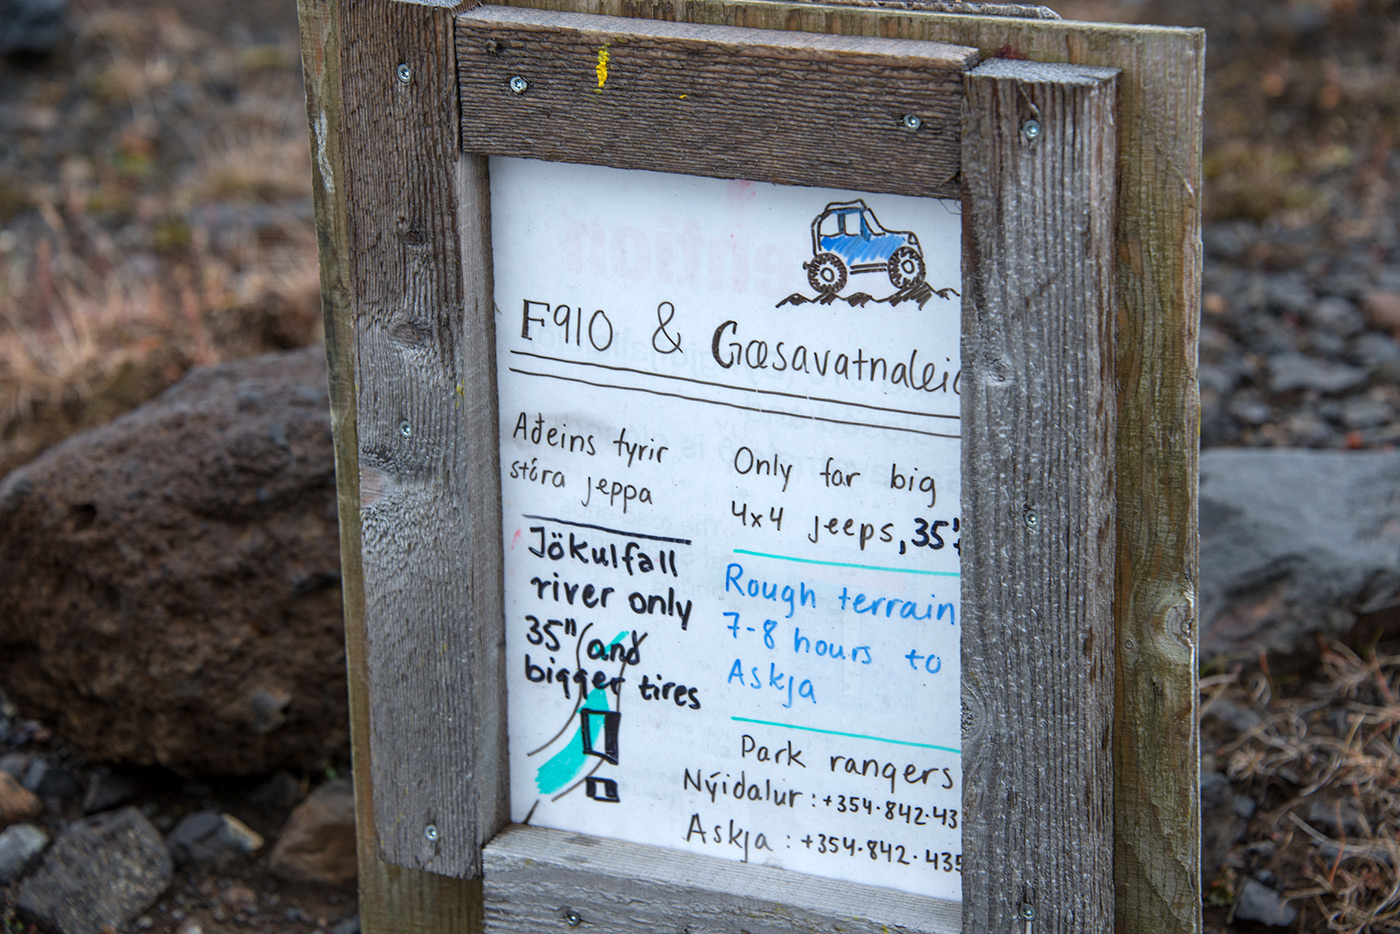 F910 & Gæsavatnaleið
Aðeins fyrir
stóra jeppa
Jökulfall
river only
35" (and
bigger tires
Only for big
4x4 jeeps, 35"
Rough terrain
7-8 hours to
Askja
Park rangers
Nýidalur : +354.842.43
Askja : +354.842.435